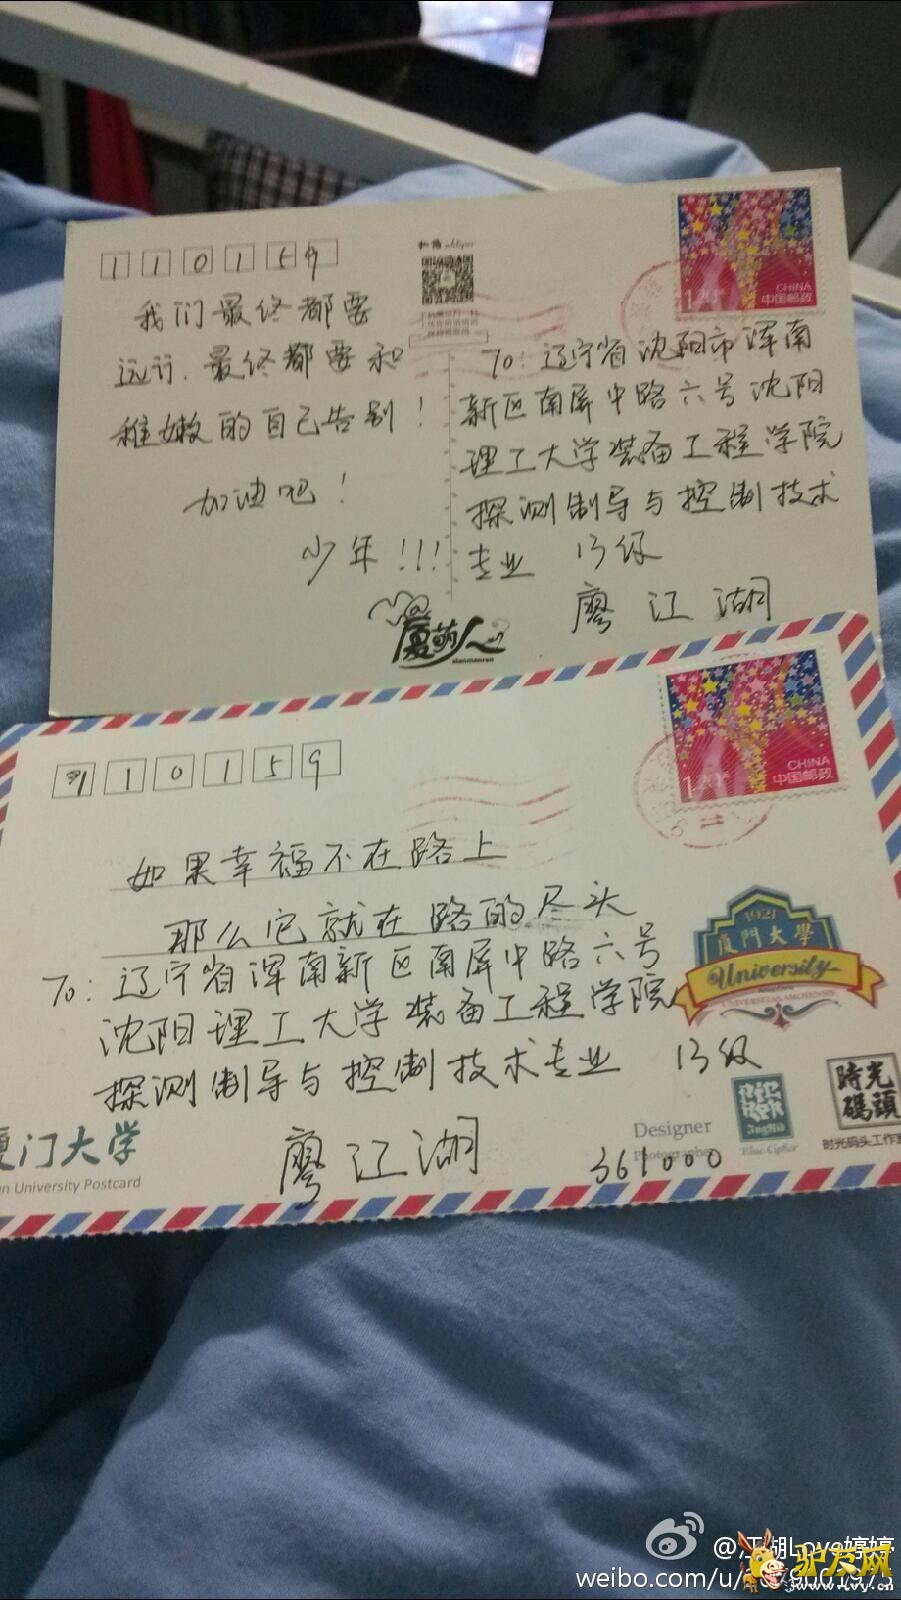 110159
我们最终都要
远行.最终都要和
稚嫩的自己告别!
加油吧!
少年!!!
CHINA
1.20元
中国邮政
To:辽宁省沈阳市浑南
新区南屏中路六号沈阳
理工大学装备工程学院
探测制导与控制技术
专业 13级
廖江湖
厦萌人
xiamenren
110159
CHINA
1.20元
中国邮政
如果幸福不在路上
那么它就在路的尽头
To:辽宁省浑南新区南屏中路六号
沈阳理工大学装备工程学院
探测制导与控制技术专业 13级
廖江湖
361000
1921
厦門大學
University
UNIVERSITAS AMOIENSIS
厦门大学
n University Postcard
Designer
Photographer
Blue Cipher
時光
碼頭
时光码头工作室
@江湖Love婷婷
weibo.com/u/
驴友网